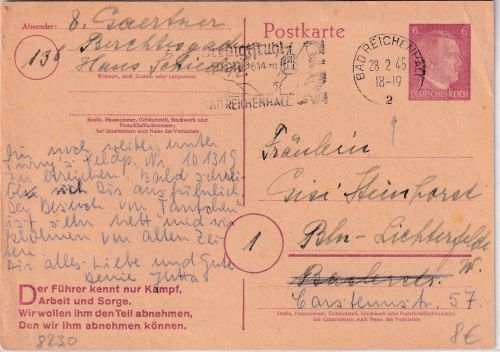 Absender: E. Gaertner
138 Berchtesgad
Haus
Wohnort, auch Zustell- oder Leitpostamt
Straße, Hausnummer, Gebäudeteil, Stockwerk oder
Postschließfachnummer;
bei Untermietern auch Name des Vermieters
Postkarte
1614 m
BAD REICHENHALL
BAD REICHENHALL
28 2.45
18-19
2
6 6
DEUTSCHES REICH
noch weiter unter
Feldp. Nr. 10131 G
zu schreiben. Bald schrei-
be ich Dir ausführlich
Der Besuch von Tantchen
ist sehr nett und wir
von alten Zei-
ten.
Dir alles Liebe und Gute
Deine Jutta
Der Führer kennt nur Kampf,
Arbeit und Sorge.
Wir wollen ihm den Teil abnehmen,
Den wir ihm abnehmen können.
8230
Fräulein
Gisi Steinhorst
1
Bln-Lichterfelde
W.
Carstennstr. 57
Straße, Hausnummer, Gebäudeteil, Stockwerk oder Postschließfachnummer;
bei Untermietern auch Name des Vermieters
8€